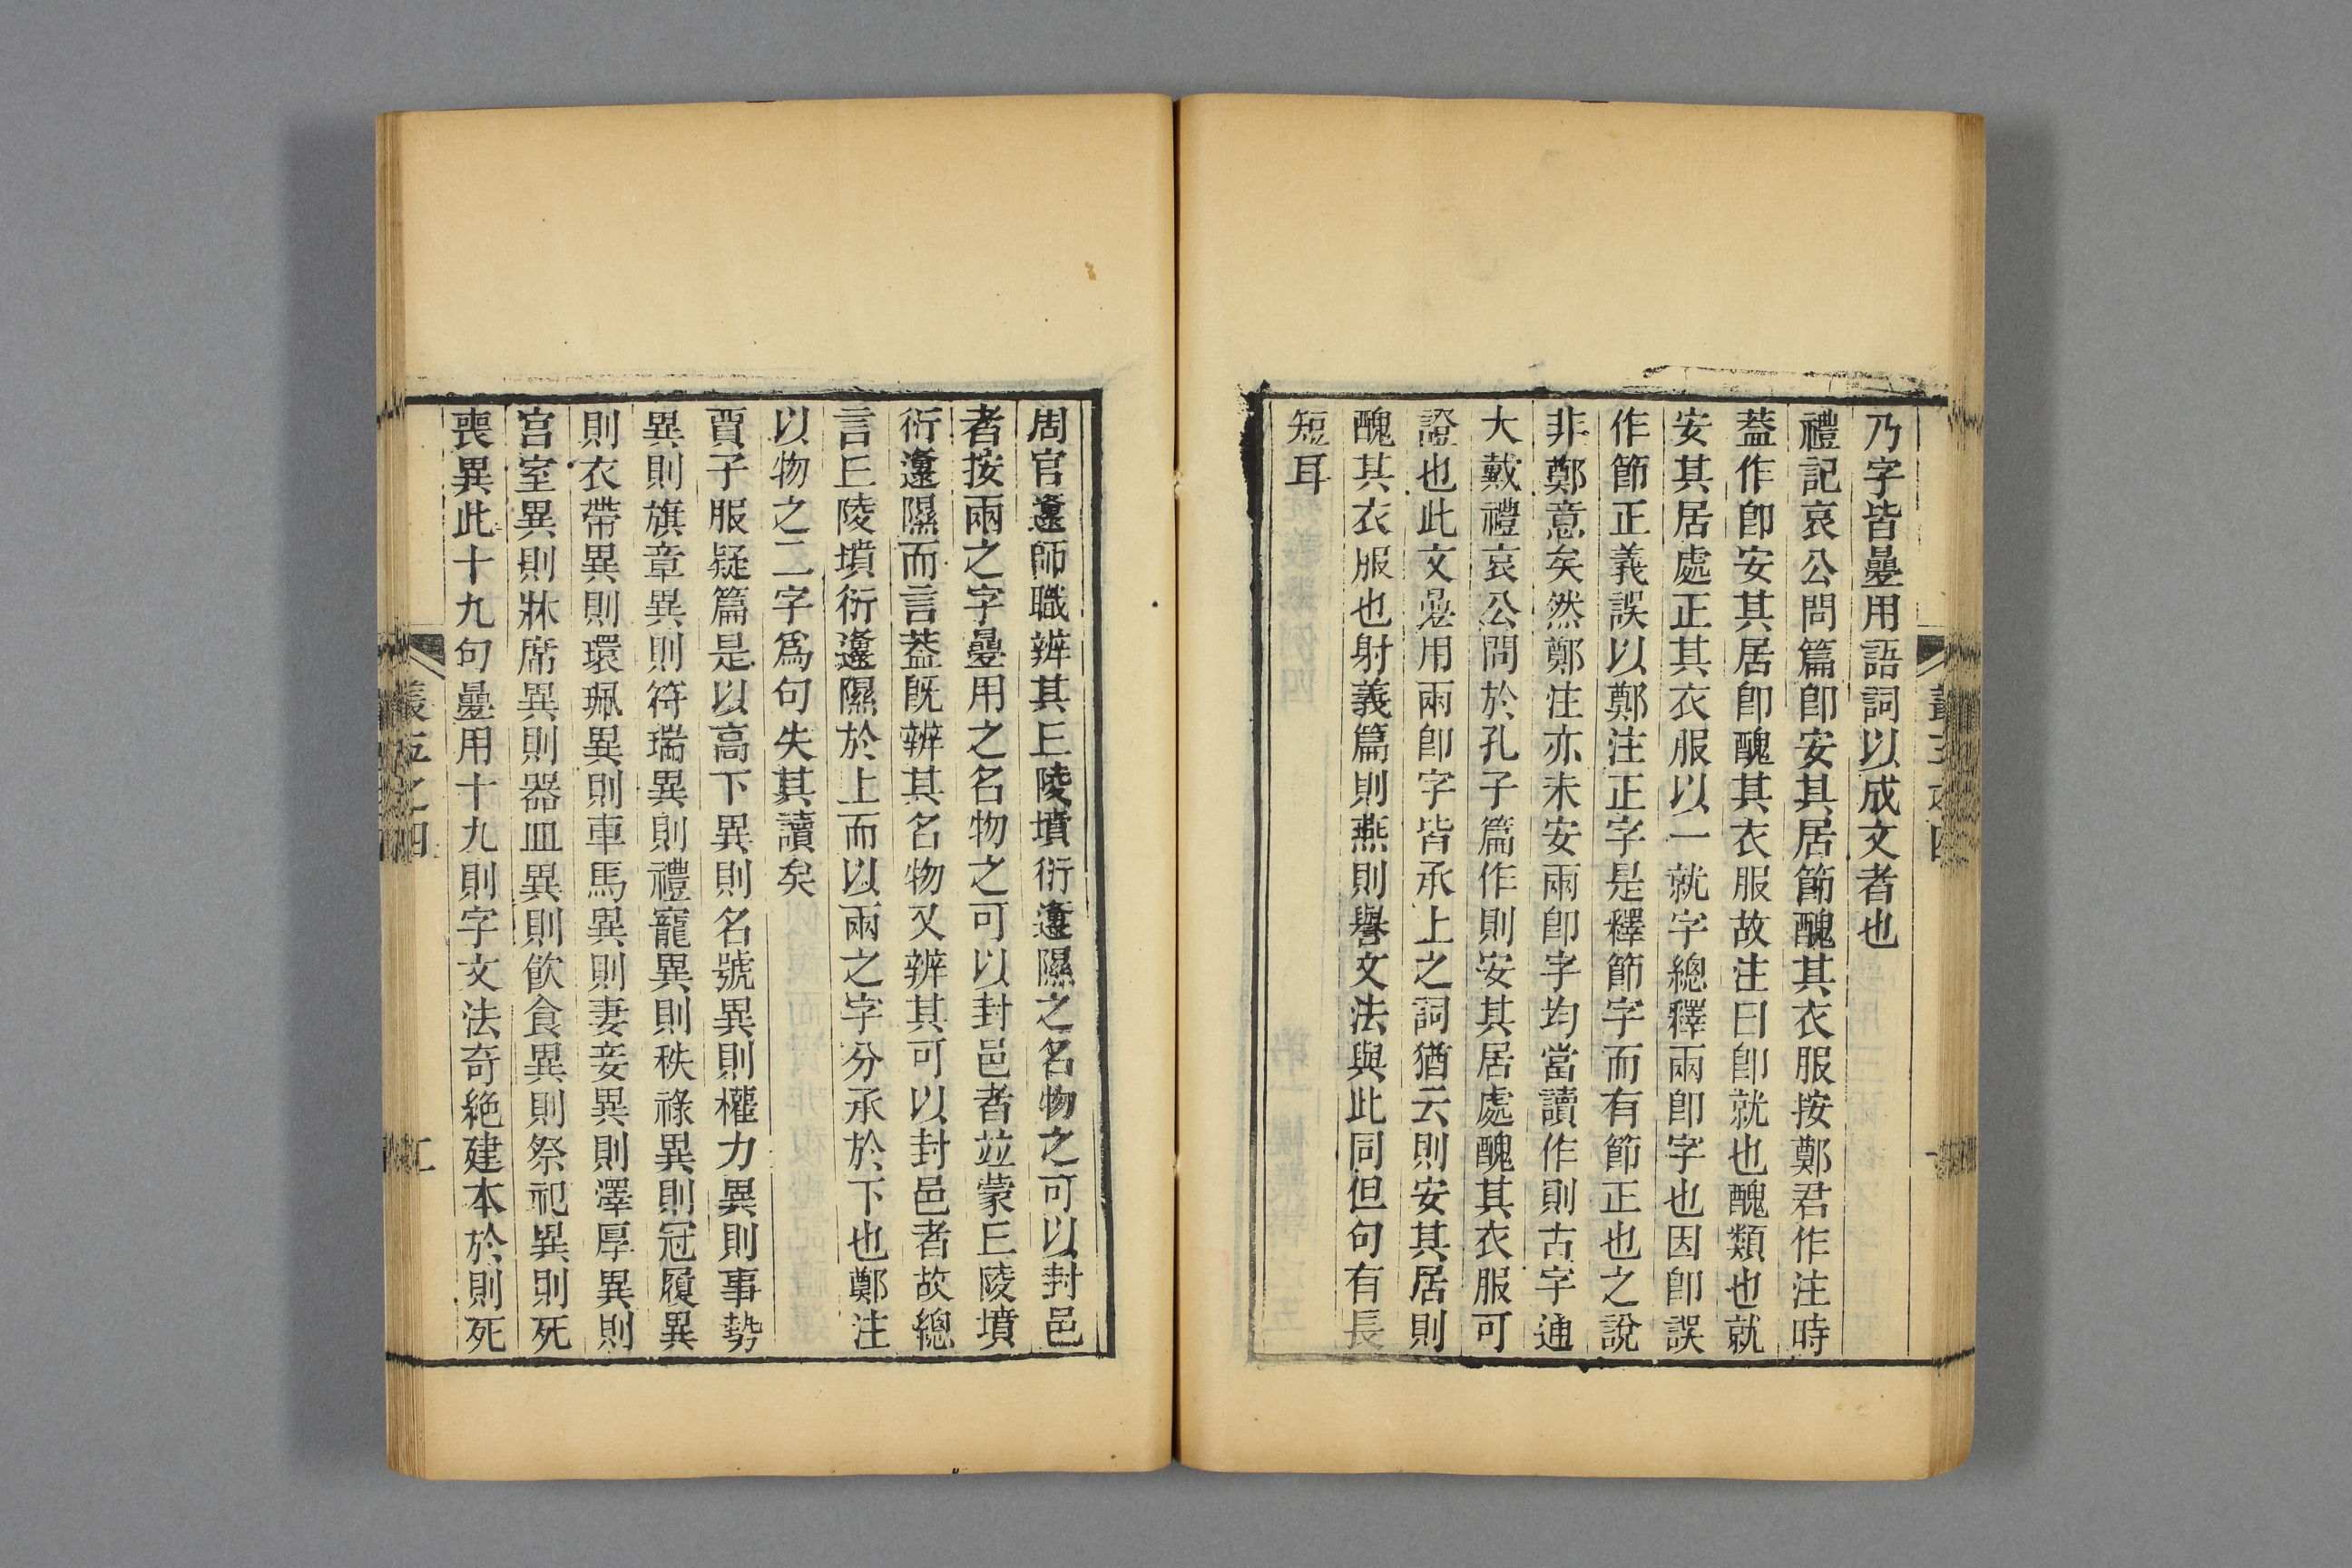 乃字皆曡用語詞以成文者也
禮記哀公問篇卽安其居節醜其衣服按鄭君作注時
葢作卽安其居卽醜其衣服故注曰卽就也醜類也就
安其居處正其衣服以一就字總釋兩卽字也因卽誤
作節正義誤以鄭注正字是釋節字而有節正也之說
非鄭意矣然鄭注亦未安兩卽字均當讀作則古字通
大戴禮哀公問於孔子篇作則安其居處醜其衣服可
證也此文曡用兩卽字皆承上之詞猶云則安其居則
醜其衣服也射義篇則燕則譽文法與此同但句有長
短耳
周官邍師職辨其㠀陵墳衍邍隰之名物之可以封邑
者按兩之字曡用之名物之可以封邑者竝蒙㠀陵墳
衍邍隰而言葢旣辨其名物又辨其可以封邑者故總
言㠀陵墳衍邍隰於上而以兩之字分承於下也鄭注
以物之二字爲句失其讀矣
賈子服疑篇是以高下異則名號異則權力異則事勢
異則旗章異則符瑞異則禮寵異則秩祿異則冠履異
則衣帶異則環珮異則車馬異則妻妾異則澤厚異則
宮室異則牀席異則器皿異則飮食異則祭祀異則死
喪異此十九句曡用十九則字文法奇絶建本於則死
叢五之四